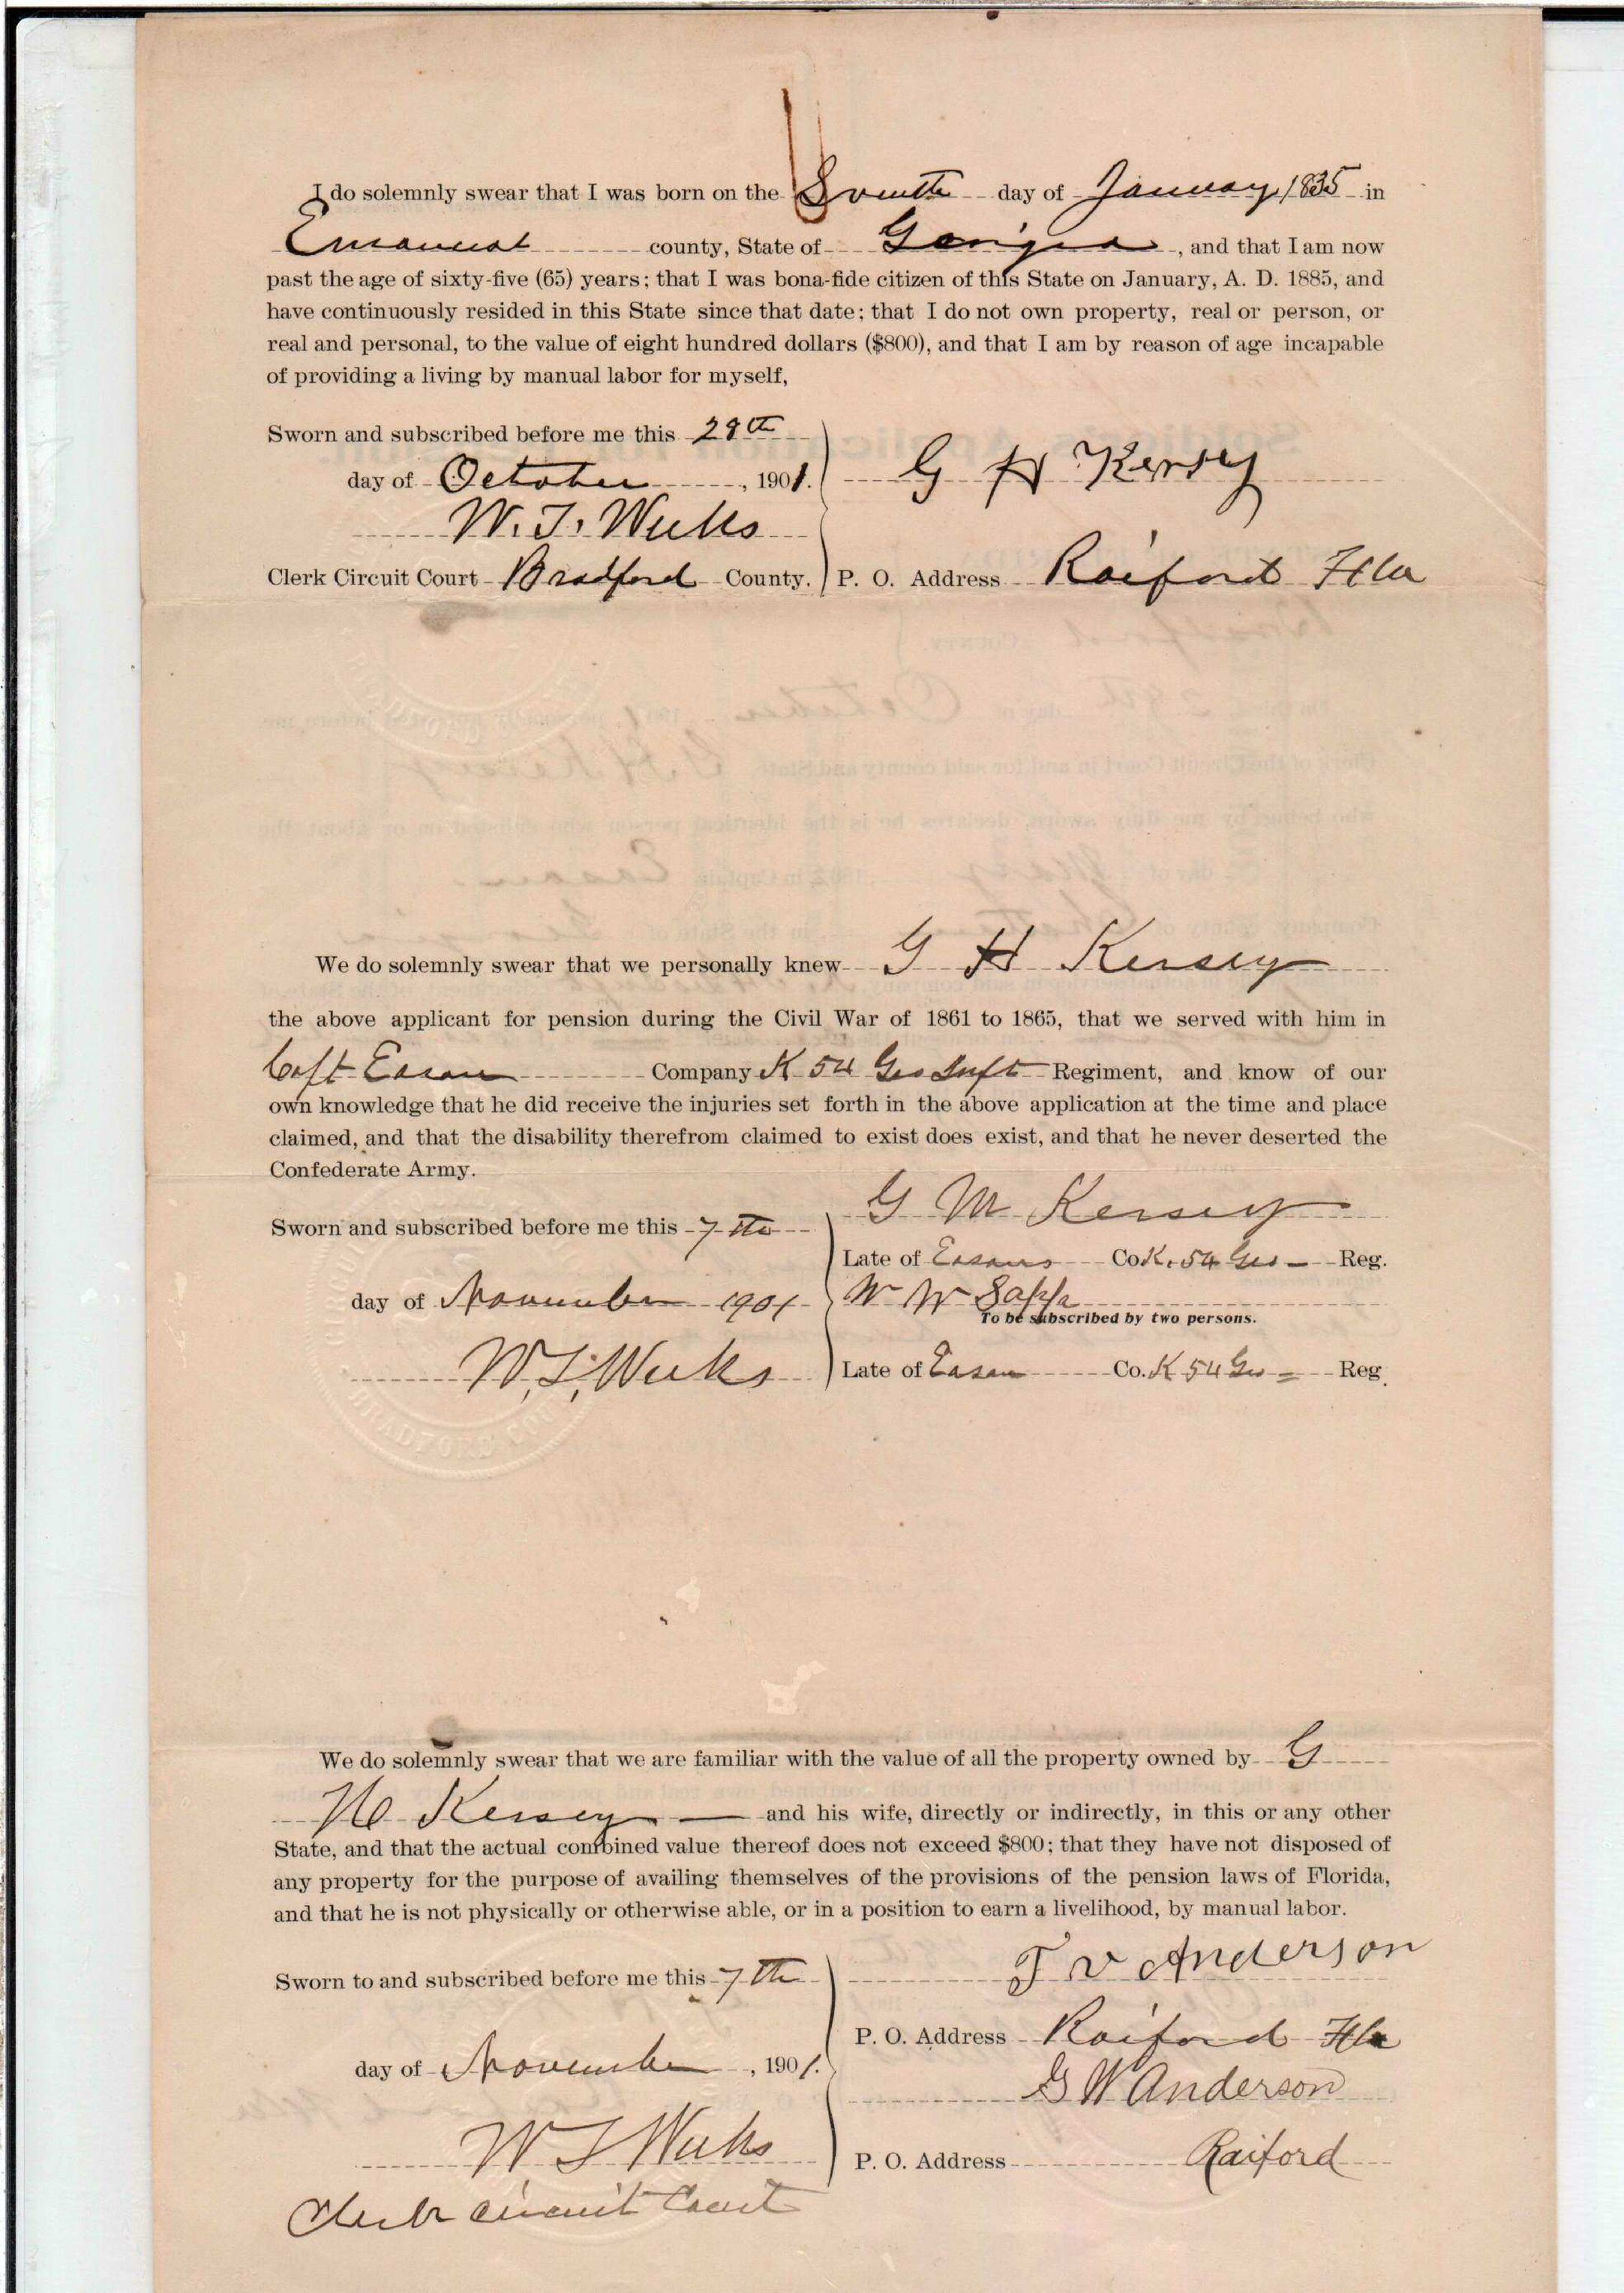 I do solemnly swear that I was born on the Seventh day of January 1835 in
Emanuel county, State of Georgia, and that I am now
past the age of sixty-five (65) years; that I was bona-fide citizen of this State on January, A. D. 1885, and
have continuously resided in this State since that date; that I do not own property, real or person, or
real and personal, to the value of eight hundred dollars ($800), and that I am by reason of age incapable
of providing a living by manual labor for myself,
Sworn and subscribed before me this 28th
day of October, 1901. G H Kersey
W. T. Weeks
Clerk Circuit Court Bradford County. P. O. Address Raiford Fla
We do solemnly swear that we personally knew G H Kersey
the above applicant for pension during the Civil War of 1861 to 1865, that we served with him in
Capt Eason Company K 54 Geo Inft Regiment, and know of our
own knowledge that he did receive the injuries set forth in the above application at the time and place
claimed, and that the disability therefrom claimed to exist does exist, and that he never deserted the
Confederate Army.
G M Kersey
Sworn and subscribed before me this 7th
Late of Easons Co K. 54 Geo Reg.
day of November 1901 W W Sapp
To be subscribed by two persons.
W. T. Weeks Late of Eason Co. K 54 Geo Reg.
BRADFORD COU
We do solemnly swear that we are familiar with the value of all the property owned by G
H Kersey and his wife, directly or indirectly, in this or any other
State, and that the actual combined value thereof does not exceed $800; that they have not disposed of
any property for the purpose of availing themselves of the provisions of the pension laws of Florida,
and that he is not physically or otherwise able, or in a position to earn a livelihood, by manual labor.
T V Anderson
Sworn to and subscribed before me this 7th
P. O. Address Raiford Fla
day of November, 1901.
G W Anderson
W T Weeks P. O. Address Raiford
Clerk Circuit Court